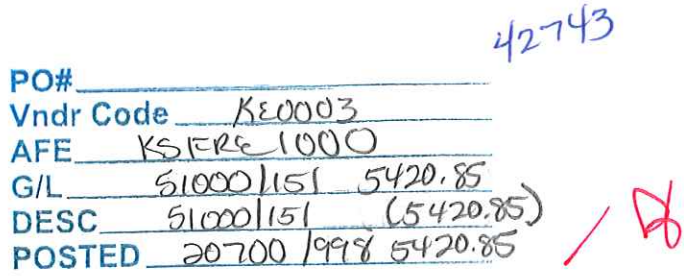 42743
PO#
Vndr Code KE0003
AFE KSFRE1000
G/L 51000/151 5420.85
DESC 51000/151 (5420.85)
POSTED 20700/998 5420.85